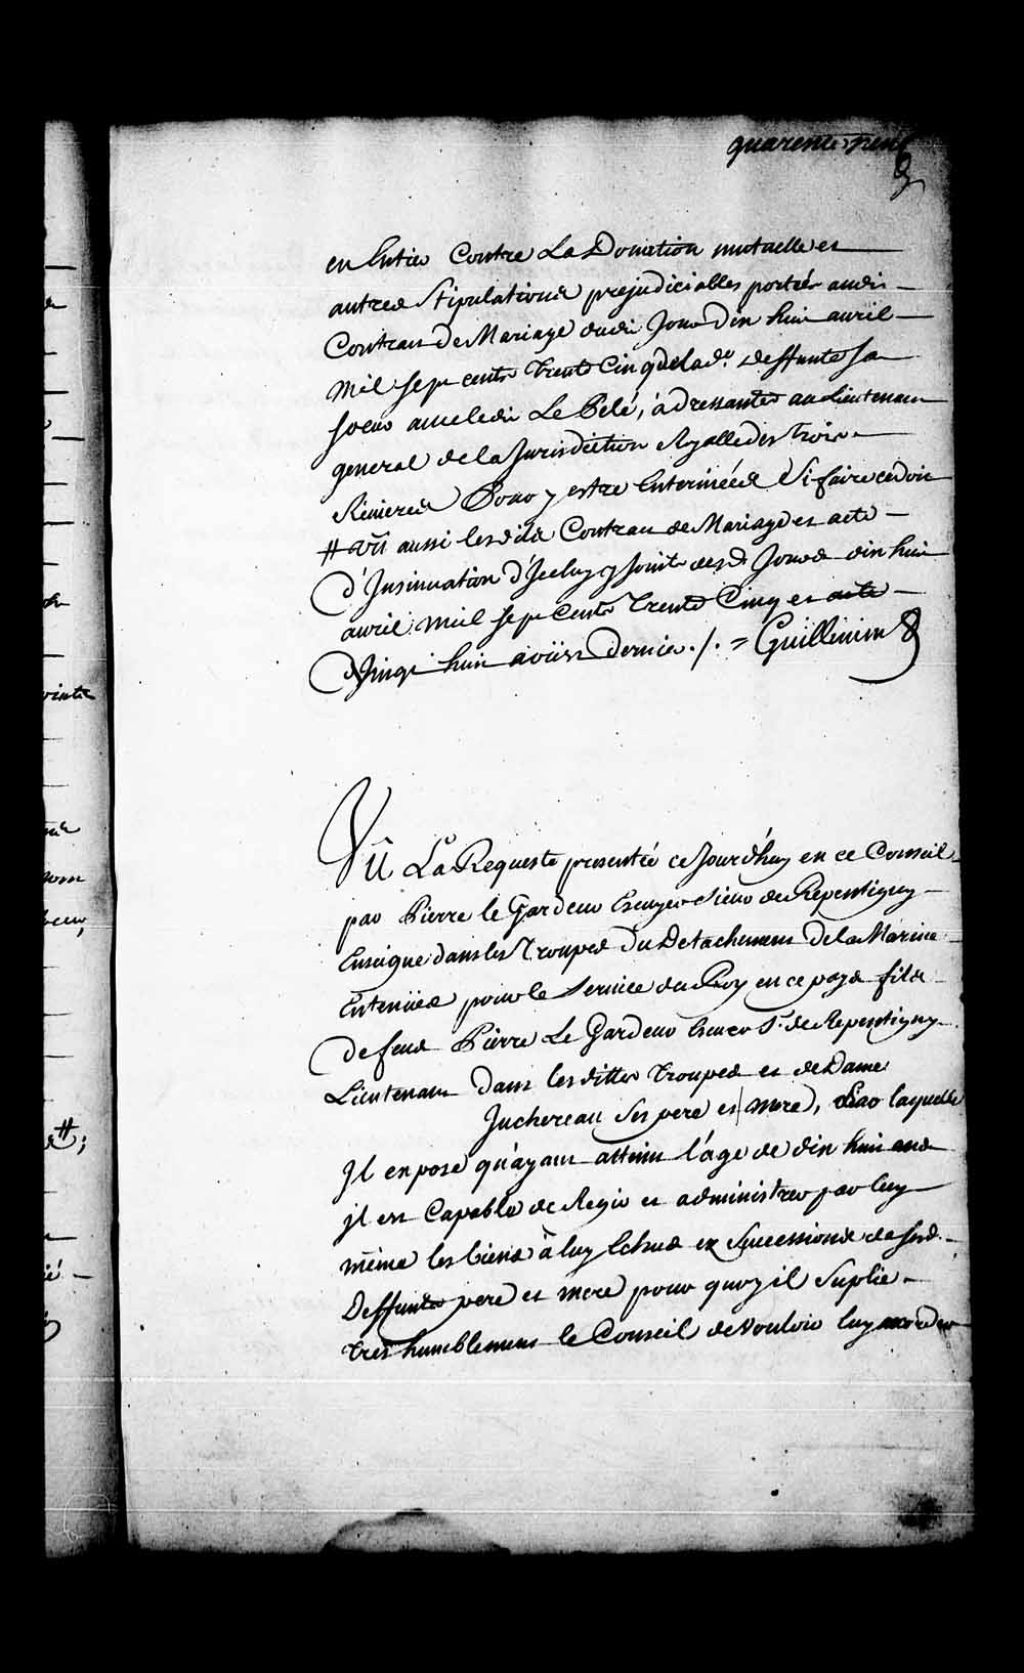 quarente neuf
en Entier Contre La Donation mutuelle et
autres Stipulations prejudiciables portés audit
Contract de Mariage dudit Jour dix huit avril
mil sept cents trente Cinq de lade. deffunte sa
soeur avec ledit Le Pelé, adressantes au Lieutenant
general de la Jurisdiction Royalle des trois
Rivieres Pour y estre Enterinées Si faire ce doit
# Vû aussi lesdits Contract de Mariage et acte
d'Insinuation d'Jceluy y Joints desd. Jours dix huit
avril mil sept Cents trente Cinq et acte
Vingt huit aoûst dernier ./. = Guillimin
Vû La Requeste presentée ce Jourd'huy en ce Conseil
par Pierre le Gardeur Escuyer Sieur de Repentigny
Enseigne dans les Troupes Du Detachement de la Marine
Entenües pour le Service du Roy en ce pays fils
De feus Pierre Le Gardeur Escuer Sr. de Repentigny
Lieutenant Dans lesdittes troupes et de Dame
Juchereau Ses pere et mere, Par laquelle
Jl expose qu'ayant atteint l'âge de dix huit ans
jl est Capable de Regir et administrer par luy
même les biens à luy Echus es Successions de sesd.
Deffunts pere et mere pour quoy il Suplie
tres humblement le Conseil de vouloir luy